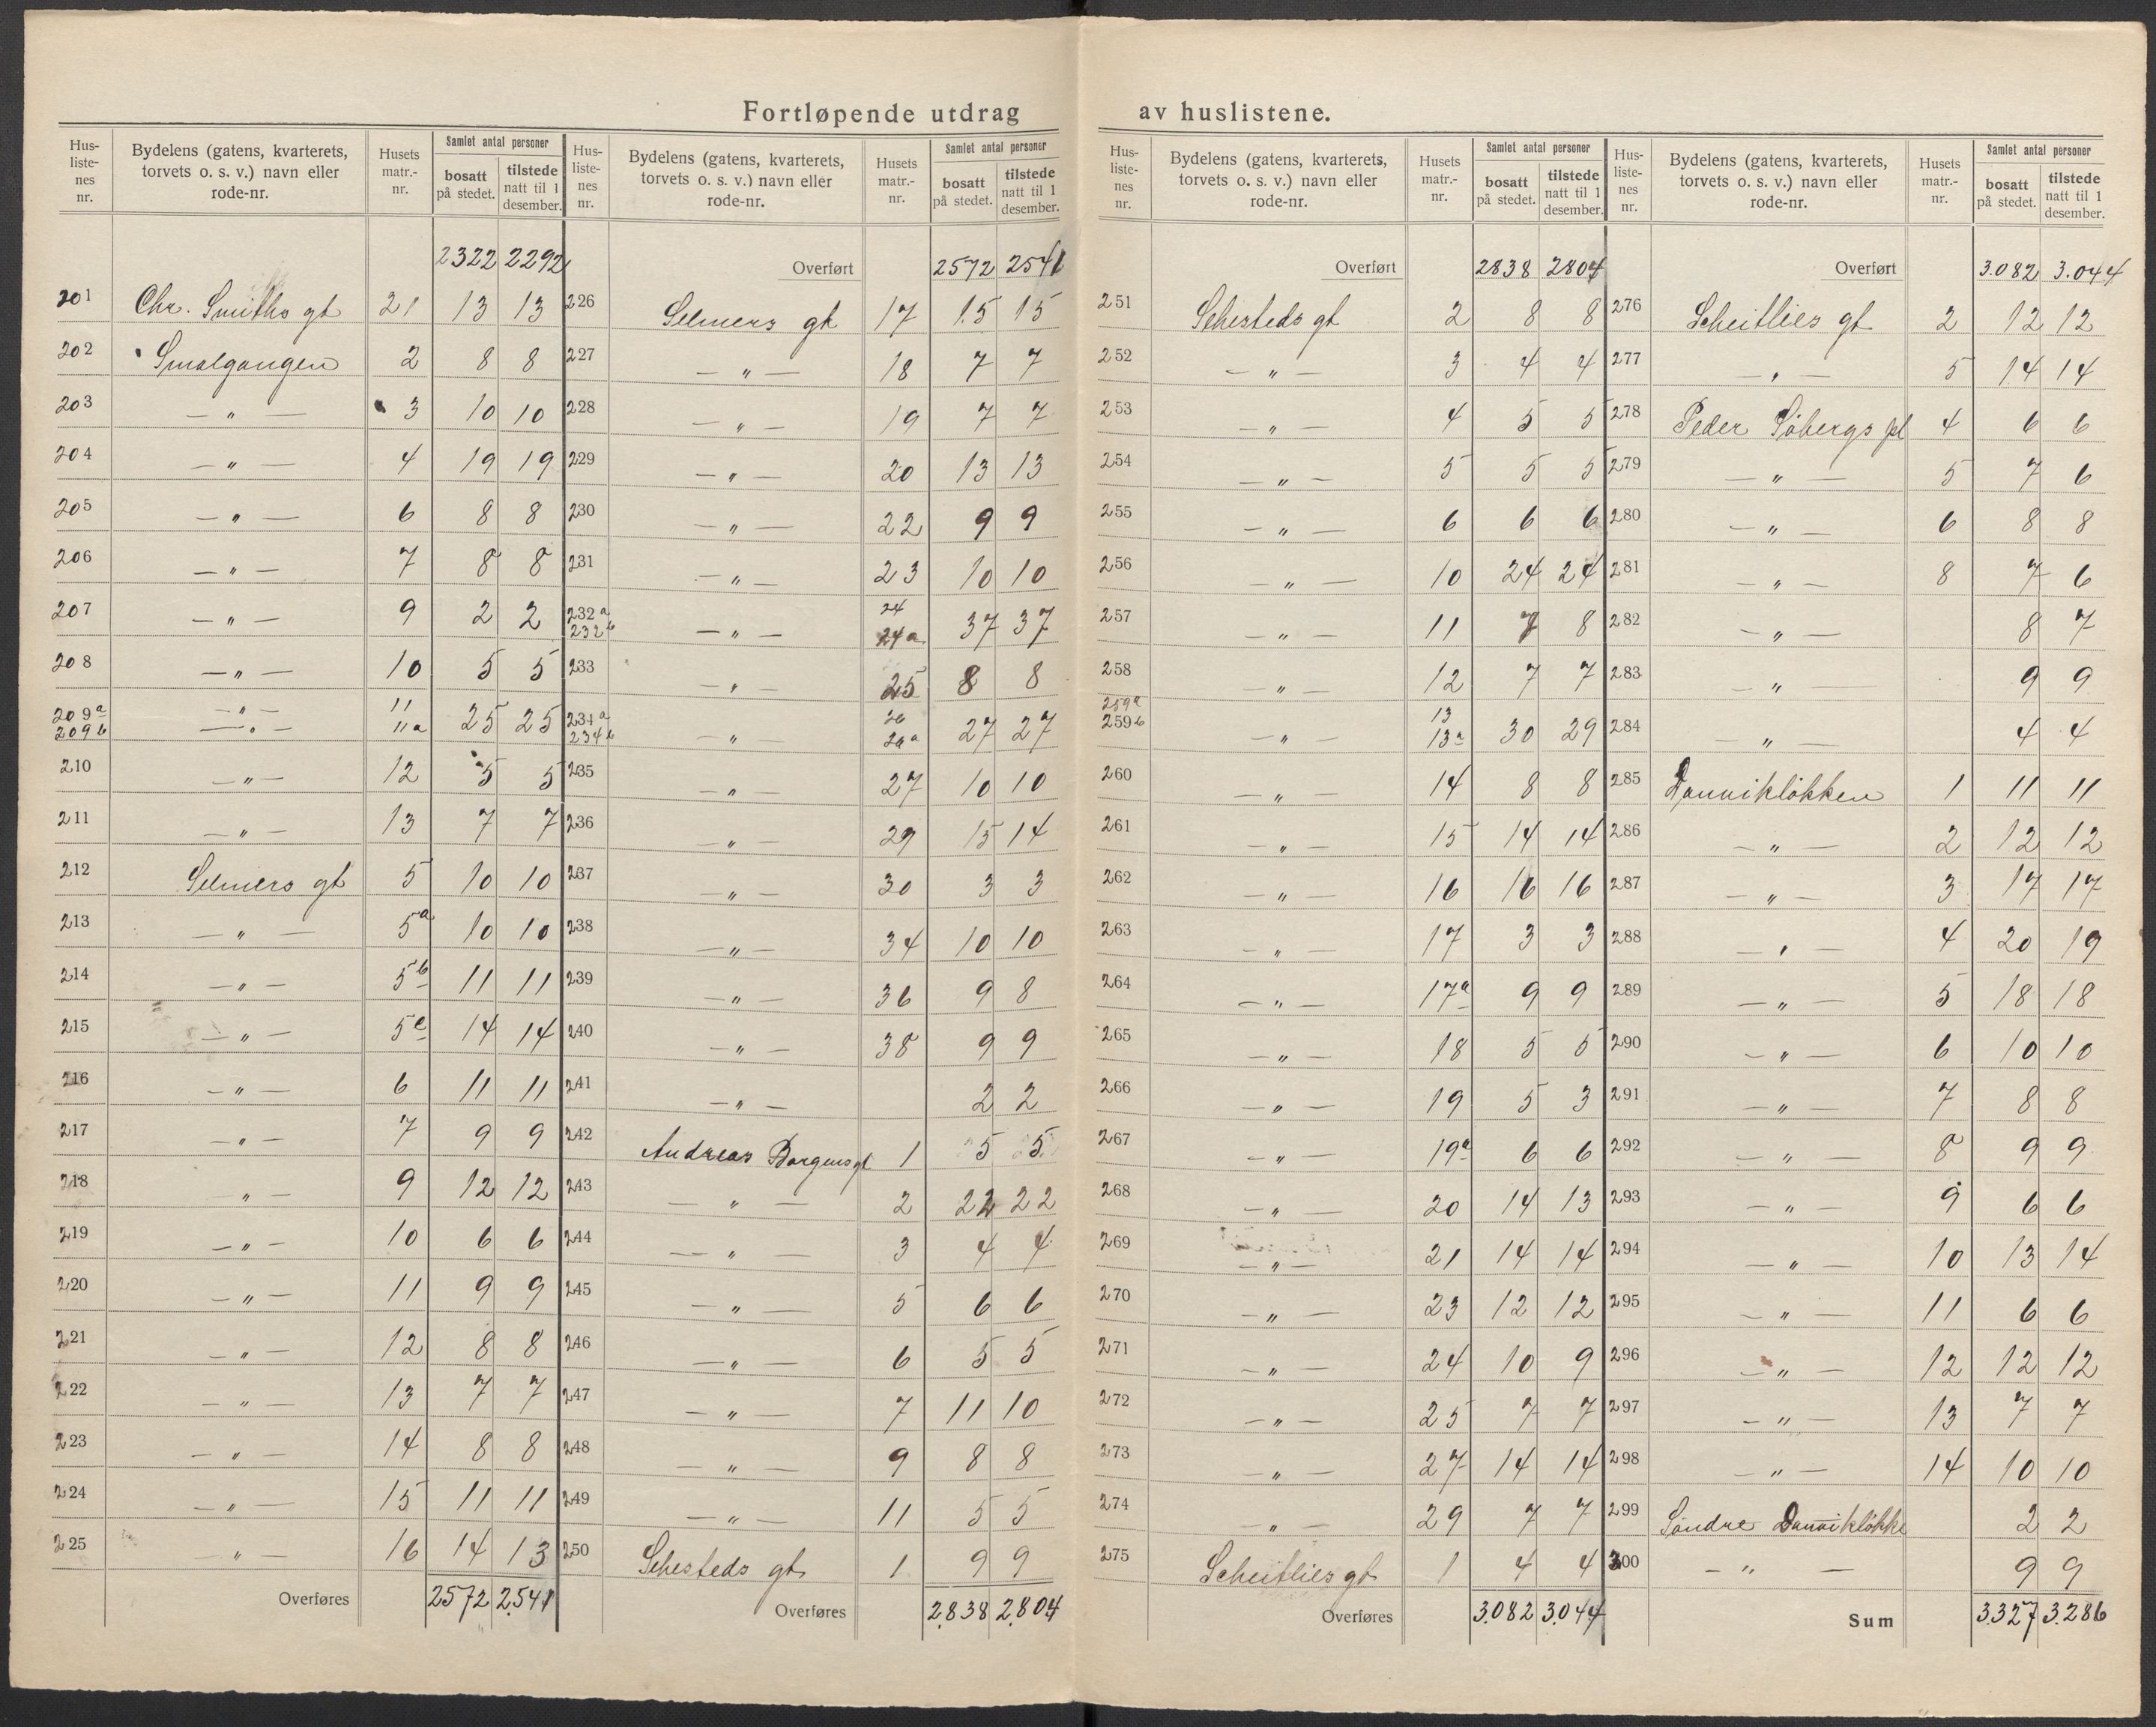 Fortløpende utdrag av huslistene.
Hus-listenes nr. | Bydelens (gatens, kvarterets, torvets o. s. v.) navn eller rode-nr. | Husets matr.-nr. | Samlet antal personer bosatt på stedet. | tilstede natt til 1 desember.
2322 2292
201 Chr. Smiths gt 21 13 13
202 Smalgangen 2 8 8
203 — " — 3 10 10
204 — " — 4 19 19
205 — " — 6 8 8
206 — " — 7 8 8
207 — " — 9 2 2
208 — " — 10 5 5
209a — " — 11
209b — " — 11a 25 25
210 — " — 12 5 5
211 — " — 13 7 7
212 Selmers gt 5 10 10
213 — " — 5a 10 10
214 — " — 5b 11 11
215 — " — 5c 14 14
216 — " — 6 11 11
217 — " — 7 9 9
218 — " — 9 12 12
219 — " — 10 6 6
220 — " — 11 9 9
221 — " — 12 8 8
222 — " — 13 7 7
223 — " — 14 8 8
224 — " — 15 11 11
225 — " — 16 14 13
Overføres 2572 2541
Hus-listenes nr. | Bydelens (gatens, kvarterets, torvets o. s. v.) navn eller rode-nr. | Husets matr.-nr. | Samlet antal personer bosatt på stedet. | tilstede natt til 1 desember.
Overført 2572 2541
226 Selmers gt 17 15 15
227 — " — 18 7 7
228 — " — 19 7 7
229 — " — 20 13 13
230 — " — 22 9 9
231 — " — 23 10 10
232a 24
232b — " — 24a 37 37
233 — " — 25 8 8
234a 26
234b — " 26a 27 27
235 — " — 27 10 10
236 — " — 29 15 14
237 — " — 30 3 3
238 — " — 34 10 10
239 — " — 36 9 8
240 — " — 38 9 9
241 — " — 2 2
242 Andreas Borgens gt 1 5 5
243 — " — 2 22 22
244 — " — 3 4 4
245 — " — 5 6 6
246 — " — 6 5 5
247 — " — 7 11 10
248 — " — 9 8 8
249 — " — 11 5 5
250 Sehesteds gt 1 9 9
Overføres 2.838 2.804
Hus-listenes nr. | Bydelens (gatens, kvarterets, torvets o. s. v.) navn eller rode-nr. | Husets matr.-nr. | Samlet antal personer bosatt på stedet. | tilstede natt til 1 desember.
Overført 2838 2804
251 Sehesteds gt 2 8 8
252 — " — 3 4 4
253 — " — 4 5 5
254 — " — 5 5 5
255 — " — 6 6 6
256 — " — 10 24 24
257 — " — 11 7 8
258 — " — 12 7 7
259a 13
259b — " — 13a 30 29
260 — " — 14 8 8
261 — " — 15 14 14
262 — " — 16 16 16
263 — " — 17 3 3
264 — " — 17a 9 9
265 — " — 18 5 5
266 — " — 19 5 3
267 — " — 19a 6 6
268 — " — 20 14 13
269 — " — 21 14 14
270 — " — 23 12 12
271 — " — 24 10 9
272 — " — 25 7 7
273 — " — 27 14 14
274 — " — 29 7 7
275 Scheitlies gt 1 4 4
Overføres 3.082 3.044
Hus-listenes nr. | Bydelens (gatens, kvarterets, torvets o. s. v.) navn eller rode-nr. | Husets matr.-nr. | Samlet antal personer bosatt på stedet. | tilstede natt til 1 desember.
Overført 3.082 3.044
276 Scheitlies gt 2 12 12
277 — " — 5 14 14
278 Peder Söbergs pl 4 6 6
279 — " — 5 7 6
280 — " — 6 8 8
281 — " — 8 7 6
282 — " — 8 7
283 — " 9 9
284 — " — 4 4
285 Danvikløkken 1 11 11
286 — " — 2 12 12
287 — " — 3 17 17
288 — " — 4 20 19
289 — " — 5 18 18
290 — " — 6 10 10
291 — " — 7 8 8
292 — " — 8 9 9
293 — " — 9 6 6
294 — " — 10 13 14
295 — " — 11 6 6
296 — " — 12 12 12
297 — " — 13 7 7
298 — " — 14 10 10
299 Søndre Danvikløkke 2 2
300 — " — 9 9
Sum 3.327 3.286